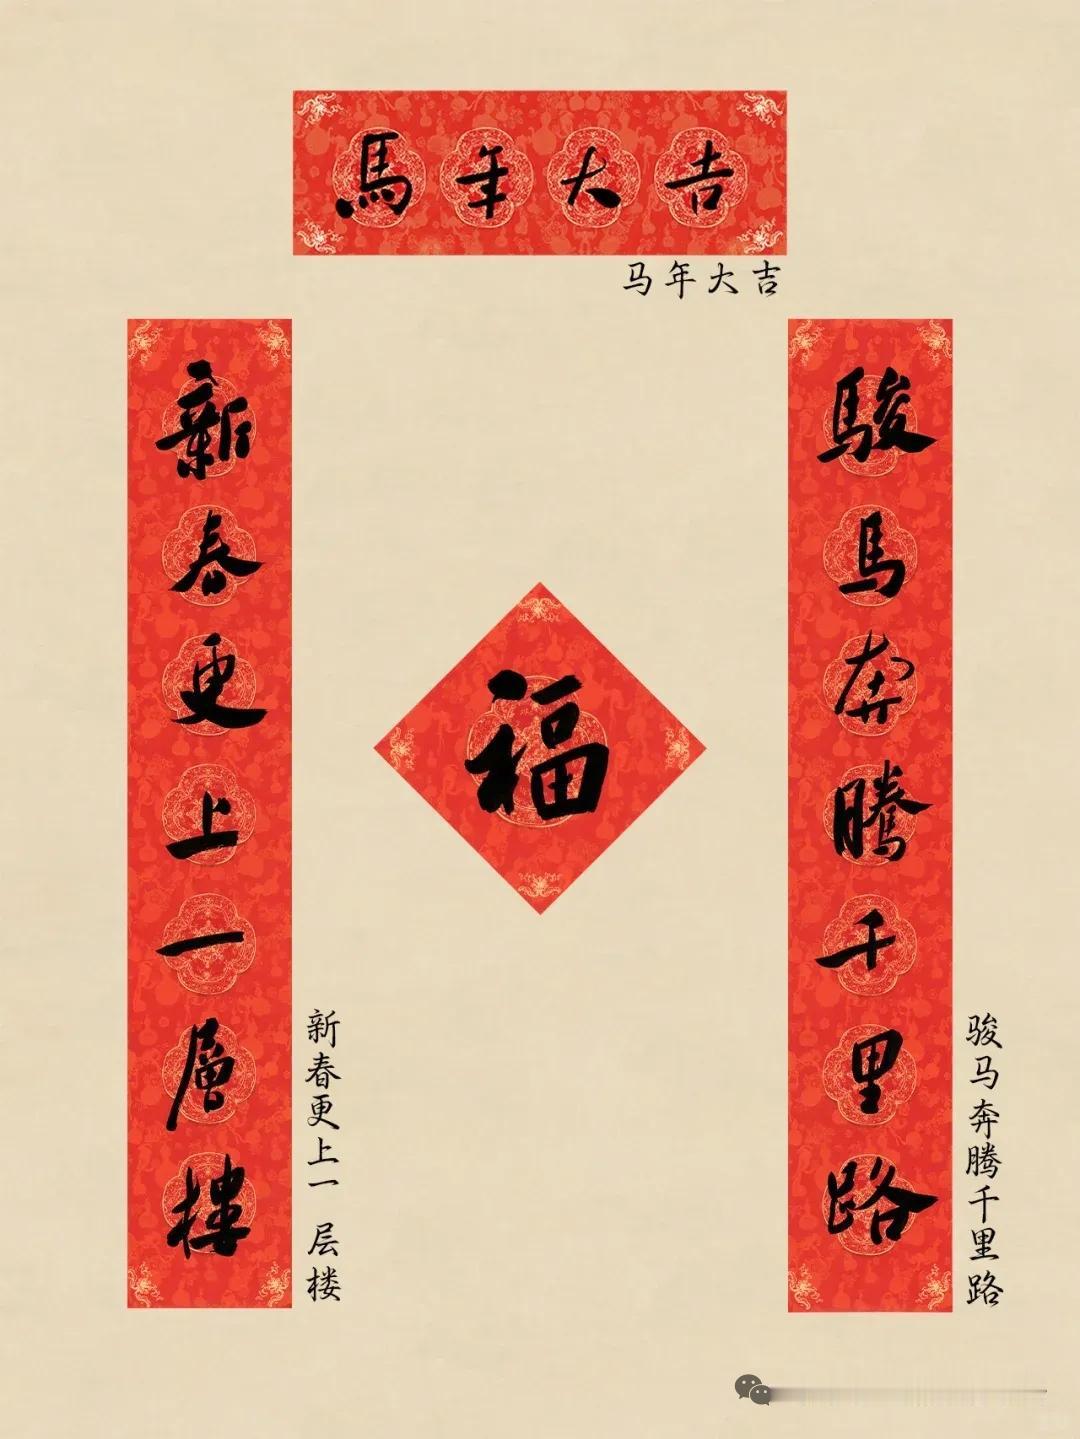 馬年大吉
马年大吉
駿馬奔騰千里路
骏马奔腾千里路
福
新春更上一層樓
新春更上一层楼